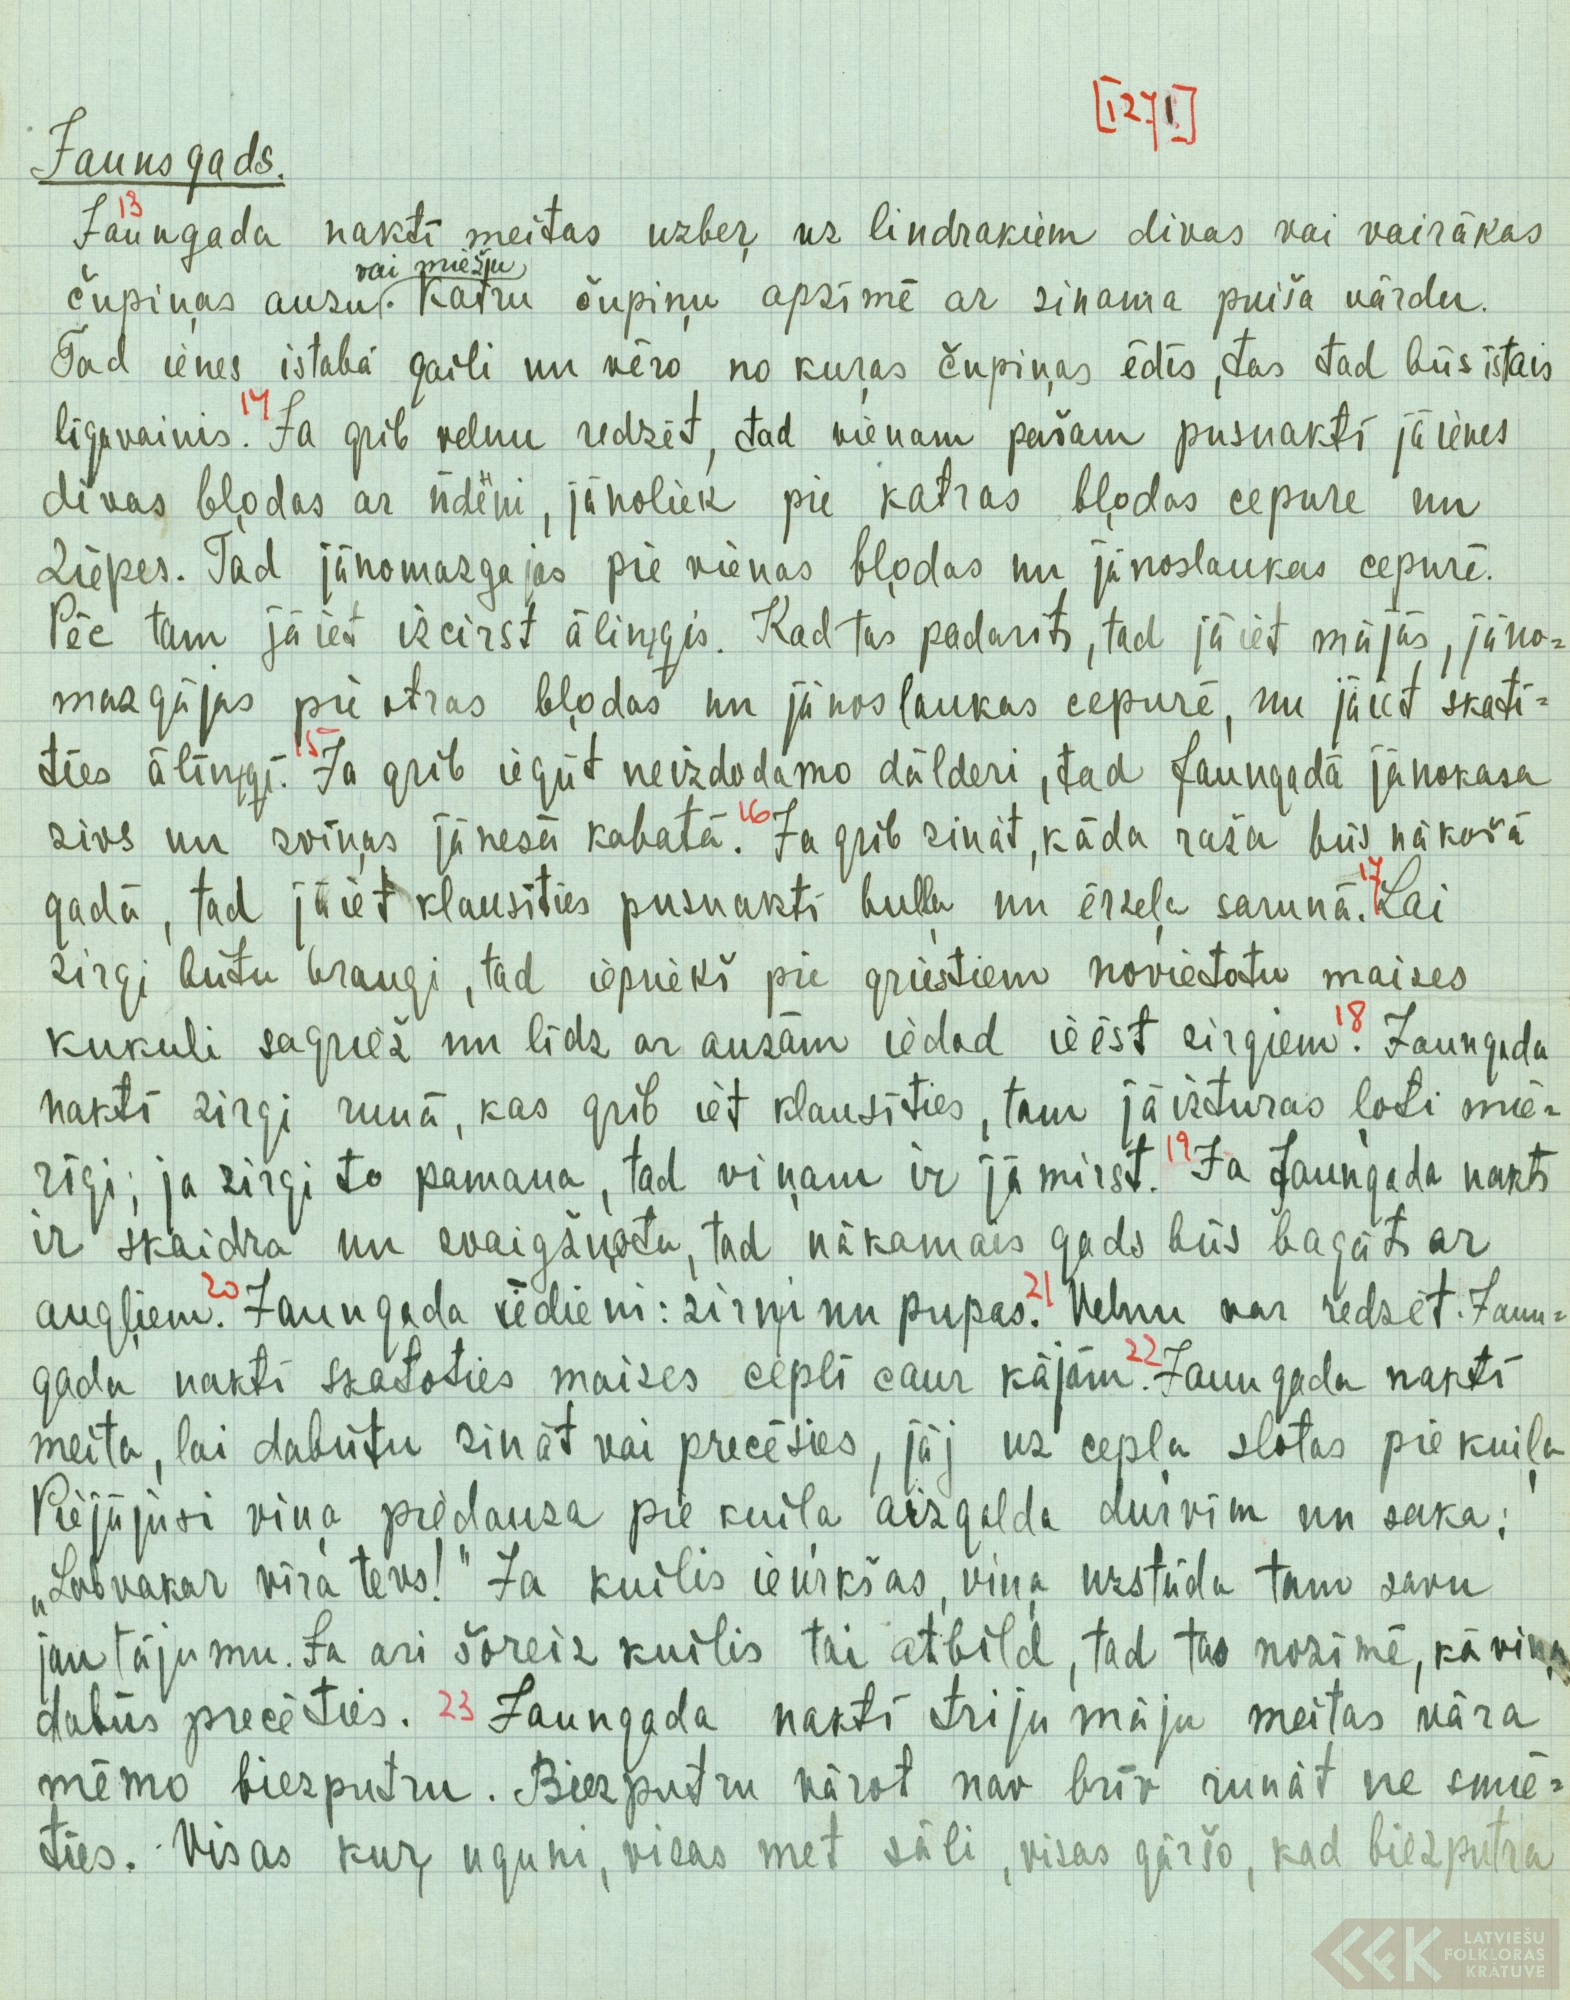 [1271]
Jauns gads.
13
Jaungada naktī meitas uzber uz lindrakiem divas vai vairākas
vai miežu
čupiņas auzu. Katru čupiņu apzīmē ar zinama puiša vārdu.
Tad ienes istabā gaili un vēro no kuŗas čupiņas ēdīs, tas tad būs īstais
līgavainis. 14 Ja grib velnu redzēt, tad vienam pašam pusnaktī jāienes
divas bļodas ar ūdēni, jānoliek pie katras bļodas cepure un
ziepes. Tad jānomazgajas pie vienas bļodas un jānoslaukas cepurē.
Pēc tam jāiet izcirst āliņģis. Kad tas padarīts, tad jāiet mājās, jāno=
mazgājas pie otras bļodas un jānoslaukas cepurē, un jāiet skatī=
ties āliņģī. 15 Ja grib iegūt neizdodamo dālderi, tad Jaungadā jānokasa
zivs un zvīņas jānesā kabatā. 16 Ja grib zināt, kāda raža būs nākošā
gadā, tad jāiet klausīties pusnaktī buļļa un ērzeļa sarunā. 17 Lai
zirgi būtu braugi, tad iepriekš pie griestiem novietotu maizes
kukuli sagriež un līdz ar auzām iedod ieēst zirgiem. 18 Jaungada
naktī zirgi runā, kas grib iet klausīties, tam jāizturas ļoti mie=
rīgi; ja zirgi to pamana, tad viņam ir jāmirst. 19 Ja Jaungada nakts
ir skaidra un zvaigžņota, tad nākamais gads būs bagāts ar
augļiem. 20 Jaungada ēdieni: zirņi un pupas. 21 Velnu var redzēt Jaun=
gada naktī skatoties maizes ceplī caur kājām. 22 Jaungada naktī
meita, lai dabūtu zināt vai precēsies, jāj uz cepļa slotas pie kuiļa
Piejājusi viņa piedauza pie kuiļa aizgalda durvīm un saka:
„Labvakar vīra tēvs!" Ja kuilis ieurkšas, viņa uzstāda tam savu
jautājumu. Ja ari šoreiz kuilis tai atbild, tad tas nozīmē, kā viņa
dabūs precēties. 23 Jaungada naktī triju māju meitas vāra
mēmo biezputru. Biezputru vārot nav brīv runāt ne smie=
ties. Visas kuŗ uguni, visas met sāli, visas gāršo, kad biezputra
LATVIEŠU
FOLKLORAS
KRĀTUVE